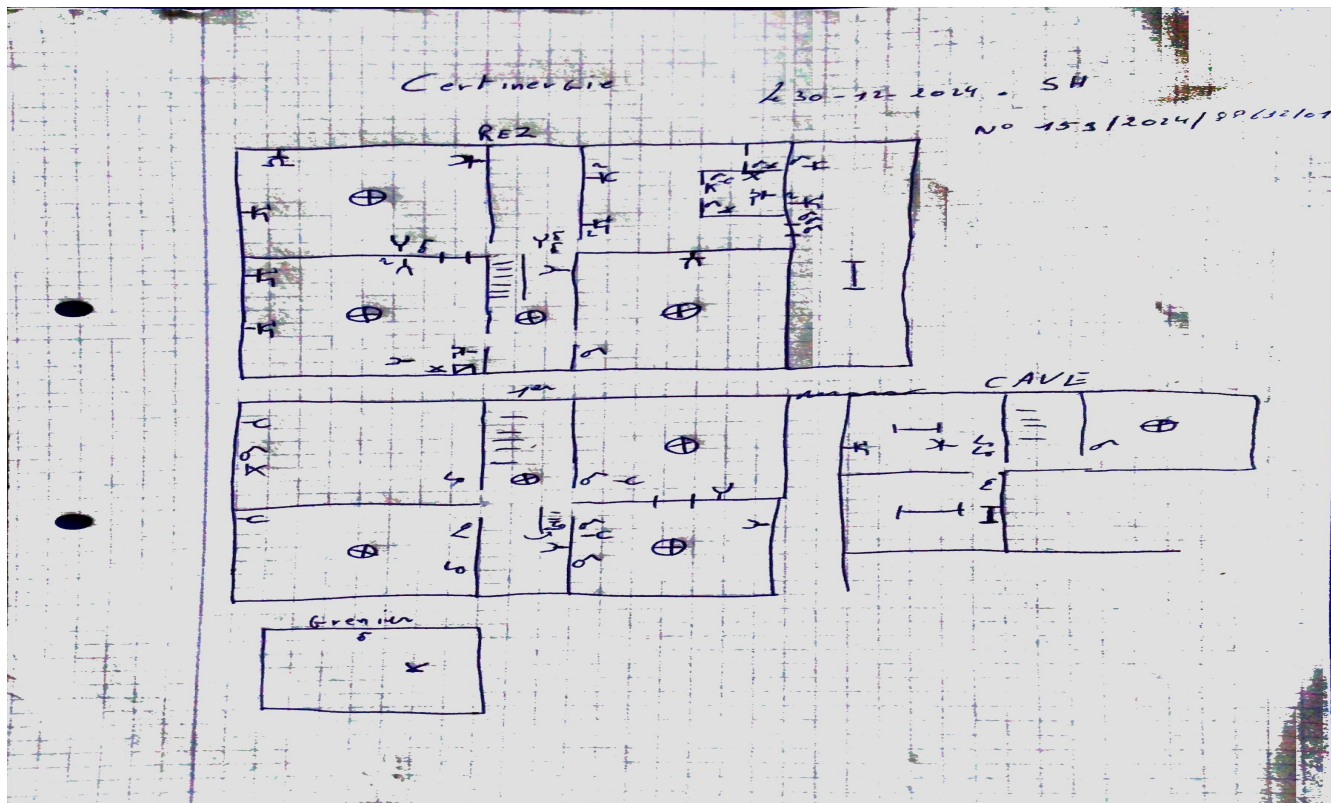 Certinergie
Le 30-12-2024. SH
N° 153/2024/
REZ
1er
CAVE
Grenier